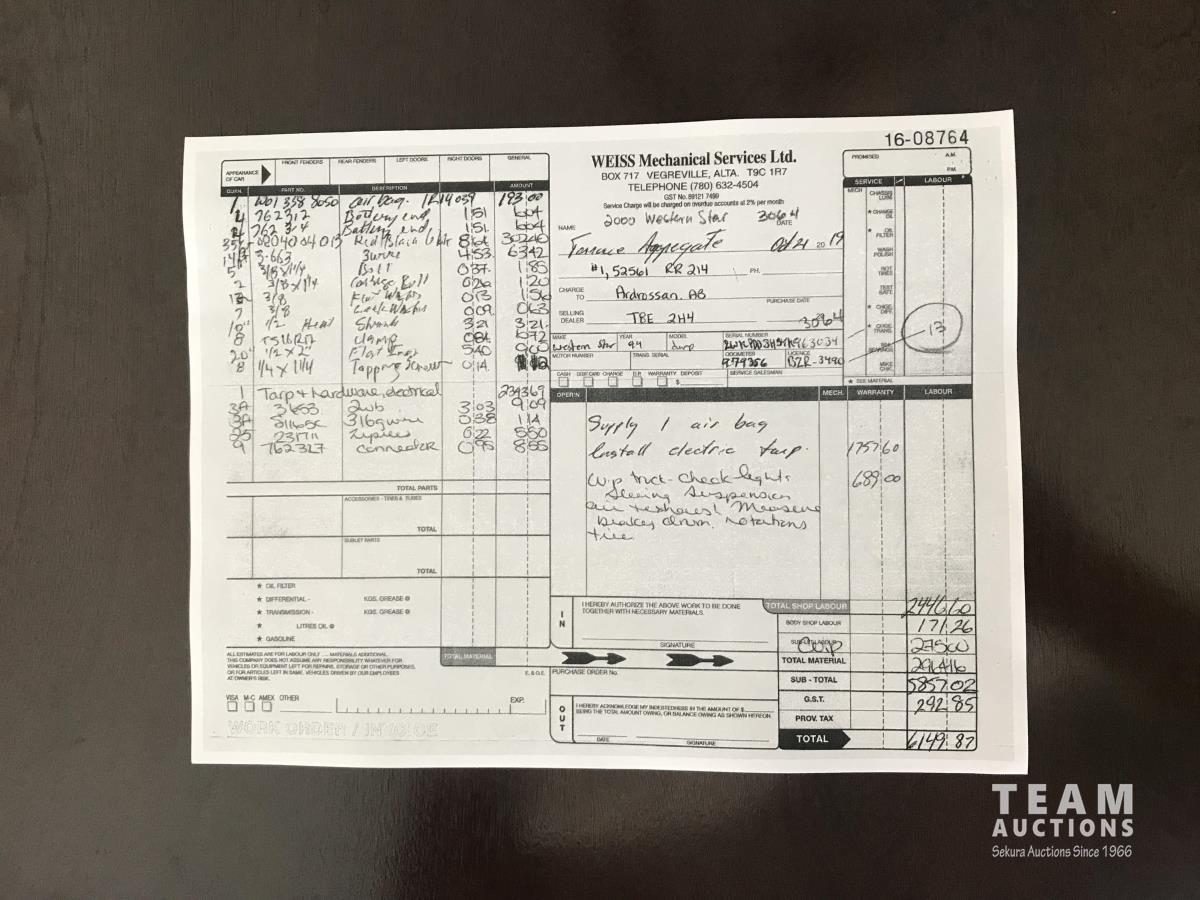 16-08764
WEISS Mechanical Services Ltd.
BOX 717 VEGREVILLE, ALTA. T9C 1R7
TELEPHONE (780) 632-4504
GST No. 89121 7499
Service Charge will be charged on overdue accounts at 2% per month
PROMISED A.M. P.M.
APPEARANCE OF CAR FRONT FENDERS REAR FENDERS LEFT DOORS RIGHT DOORS GENERAL
QUAN. PART NO. DESCRIPTION AMOUNT
1 W01 358 8050 air bag. 1R14039 193.00
4 762312 Battery end 1.51 6.04
4 Battery end 1.51 6.04
302.40
3-663 3 wire 4.53 63.42
5 3/8 x 1 1/4 Bolt 0.37 1.85
2 3/8 x 1 1/4 Carriage Bolt 1.20
12 3/8 Flat 0.13 1.56
7 3/8 Lock 0.09 0.63
10" 1/2 Heat Shrink 3.21 3.21
8 Clamp
20" 1 1/2 x 2" Flat
8 1/4 x 1 1/4 Tapping Screw 0.14
1 Tarp & hardware, electrical 2343.69
3653 2wb 3.03 9.09
316gwire 0.38 1.14
25 231711 0.22 5.50
9 762327 connector 0.95 8.55
TOTAL PARTS
ACCESSORIES - TIRES & TUBES
TOTAL
SUBLET PARTS
TOTAL
★ OIL FILTER
★ DIFFERENTIAL - KGS. GREASE @
★ TRANSMISSION - KGS. GREASE @
★ LITRES OIL @
★ GASOLINE
ALL ESTIMATES ARE FOR LABOUR ONLY .... MATERIALS ADDITIONAL.
THIS COMPANY DOES NOT ASSUME ANY RESPONSIBILITY WHATEVER FOR
VEHICLES OR EQUIPMENT LEFT FOR REPAIRS, STORAGE OR OTHER PURPOSES,
OR FOR ARTICLES LEFT IN SAME. VEHICLES DRIVEN BY OUR EMPLOYEES
AT OWNER'S RISK.
TOTAL MATERIAL
E. & O.E.
VISA M-C AMEX OTHER EXP.
WORK ORDER / INVOICE
Western Star 3064
NAME DATE
Aggegate Oct 21 2019
#1, 52561 RR 214 PH.
CHARGE TO Ardrossan. AB
PURCHASE DATE
SELLING DEALER T8E 2H4 3064
MAKE YEAR MODEL SERIAL NUMBER
Western Star 94 dump
MOTOR NUMBER TRANS. SERIAL ODOMETER LICENCE
979356 BZR-3490
CASH CHARGE WARRANTY DEPOSIT $ SERVICE SALESMAN
SERVICE LABOUR
MECH
CHASSIS LUBE
★ CHANGE OIL
★ OIL FILTER
WASH POLISH
ROT TIRES
★ CHGE. DIFF.
★ CHGE. TRANS.
13
★ SEE MATERIAL
OPER'N MECH. WARRANTY LABOUR
Supply 1 air bag
Install electric tarp. 1757.60
cvip truck - check lights 689.00
steering suspension
air exhaust Measure
brakes drum. rotations
tire
IN
I HEREBY AUTHORIZE THE ABOVE WORK TO BE DONE
TOGETHER WITH NECESSARY MATERIALS.
SIGNATURE
PURCHASE ORDER No.
OUT
I HEREBY ACKNOWLEDGE MY INDEBTEDNESS IN THE AMOUNT OF $
BEING THE TOTAL AMOUNT OWING, OR BALANCE OWING AS SHOWN HEREON.
DATE SIGNATURE
TOTAL SHOP LABOUR 2446.60
BODY SHOP LABOUR 171.26
SUB-LET LABOUR Cvip 275.00
TOTAL MATERIAL 2964.16
SUB - TOTAL 5857.02
G.S.T. 292.85
PROV. TAX
TOTAL 6149.87
TEAM
AUCTIONS
Sekura Auctions Since 1966